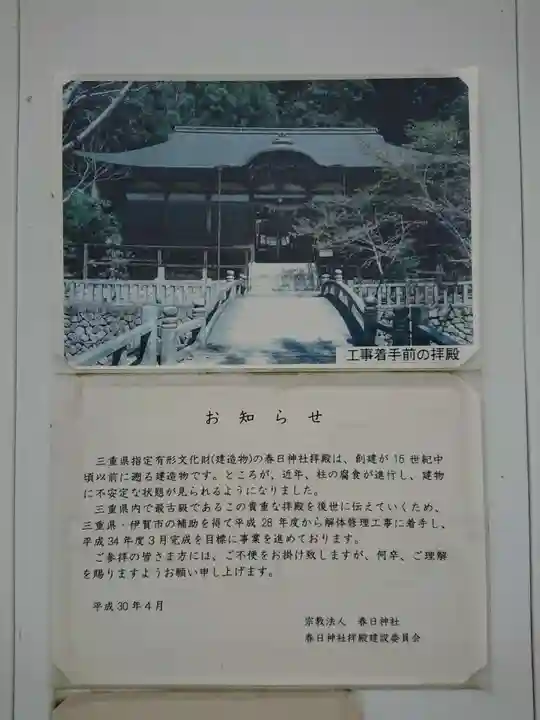 工事着手前の拝殿
お知らせ
三重県指定有形文化財(建造物)の春日神社拝殿は、創建が15世紀中
頃以前に遡る建造物です。ところが、近年、柱の腐食が進行し、建物
に不安定な状態が見られるようになりました。
三重県内で最古級であるこの貴重な拝殿を後世に伝えていくため、
三重県・伊賀市の補助を得て平成28年度から解体修理工事に着手し、
平成34年度3月完成を目標に事業を進めております。
ご参拝の皆さま方には、ご不便をお掛け致しますが、何卒、ご理解
を賜りますようお願い申し上げます。
平成30年4月
宗教法人 春日神社
春日神社拝殿建設委員会